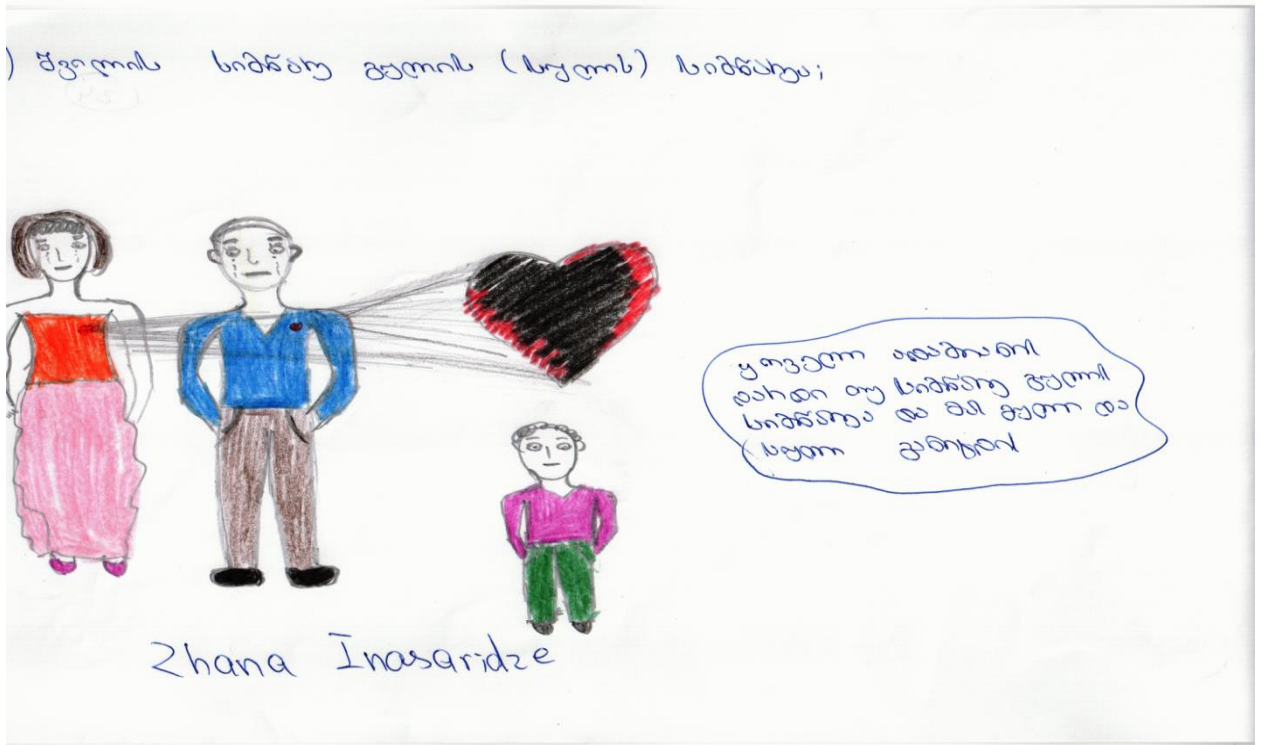 ) შვილის სიმწარე გულის (სულის) სიმწარეა;
ყოველი ადამიანი
დარდი თუ სიმწარე გულის
სიმწარეა და მი გული და
სული
Zhana Inasaridze